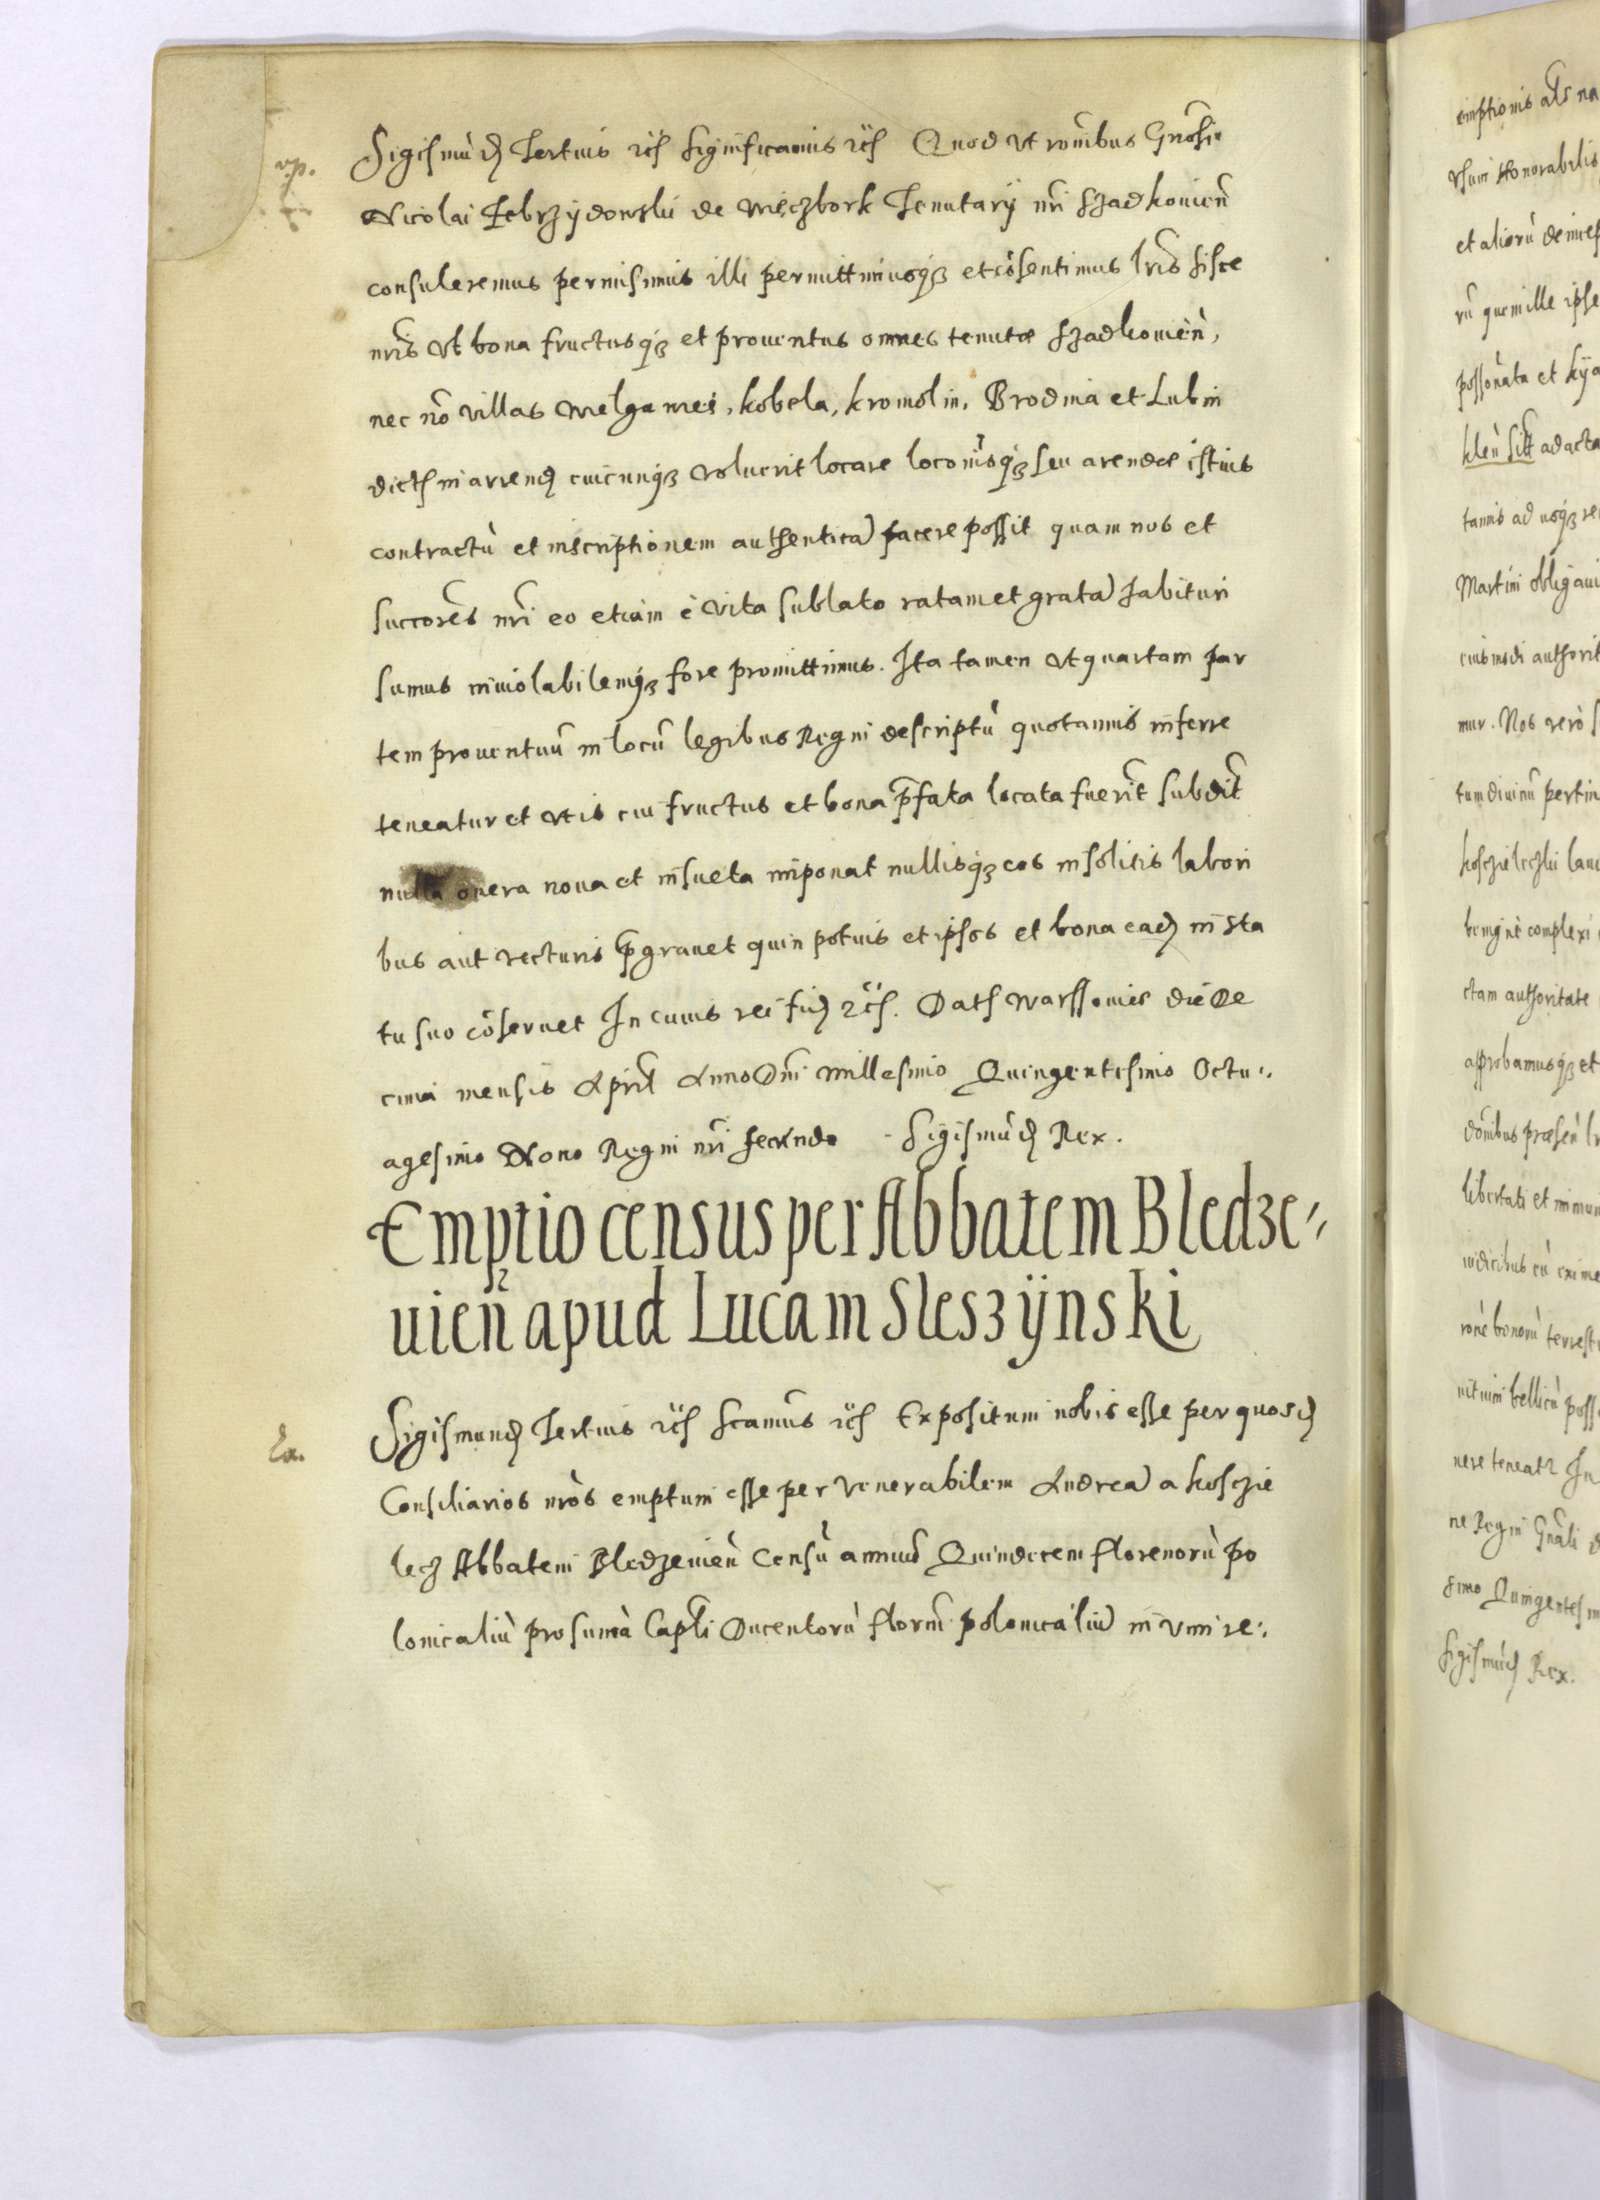 v.p.
Sigismud Tertius etc Significamus etc Quod ut ronibus Gnosi
Nicolai Zebrzydowski de Więczbork Tenutarij nri Szadkovien
consuleremus permisimus illi permittimusq et cosentimus lris hisce
nris Vt bona fructusq et prouentus omnes tenutæ Szadkovien,
nec no villas Melganiei, Kobela, Kromolin, Brodnia et Lubin
dicts in arrend cuicunq voluerit locare loconisq seu arendæ istius
contractu et inscriptionem authentica facere possit quam nos et
succores nri eo etiam è vita sublato ratam et grata habituri
sumus inuiolabilemq fore promittimus. Ita tamen vt quartam par
tem prouentuu in locu legibus Regni descriptu quotannis inferre
teneatur et vt is cui fructus et bona pfata locata fuerit subdit
nulla onera noua et insueta imponat nullisq eos insolitis labori
bus aut vecturis pgrauet quin potius et ipsos et bona ead in sta
tu suo coseruet In cuius rei fid etc. Dats Warssouiæ die De
cima mensis April Anno Dni Millesimo Quingentesimo Octu:
agesimo Nono Regni nri secundo Sigismud Rex.
Emptio census per Abbatem Bledze-
uien apud Lucam Sleszÿnski
Ea.
Sigismund Tertius etc Scamus etc Expositum nobis esse per quosd
Consiliarios nros emptum esse per venerabilem Andrea a Koscie
lecz Abbatem Bledzeuien Censu annuu Quindecem florenoru po
lonicaliu pro suma Capli Ducentoru floren polonicaliu in vim re:
emptionis als na
et alioru deincep
ru quem ille ipse
klen Sitt ad acta
tannis ad usq re
Martini obligaui
eiusmodi authorit
mur. Nos vero S
tum diuinu pertin
benigne complexi
ctam authoritate
approbamusq et
donibus præsen lr
libertati et immun
iudicibus cu exime
rone bonoru terrest
uituim bellicu poss
nere teneat In
ne Regni Gnali
simo Quingentesim
Sigismud Rex.